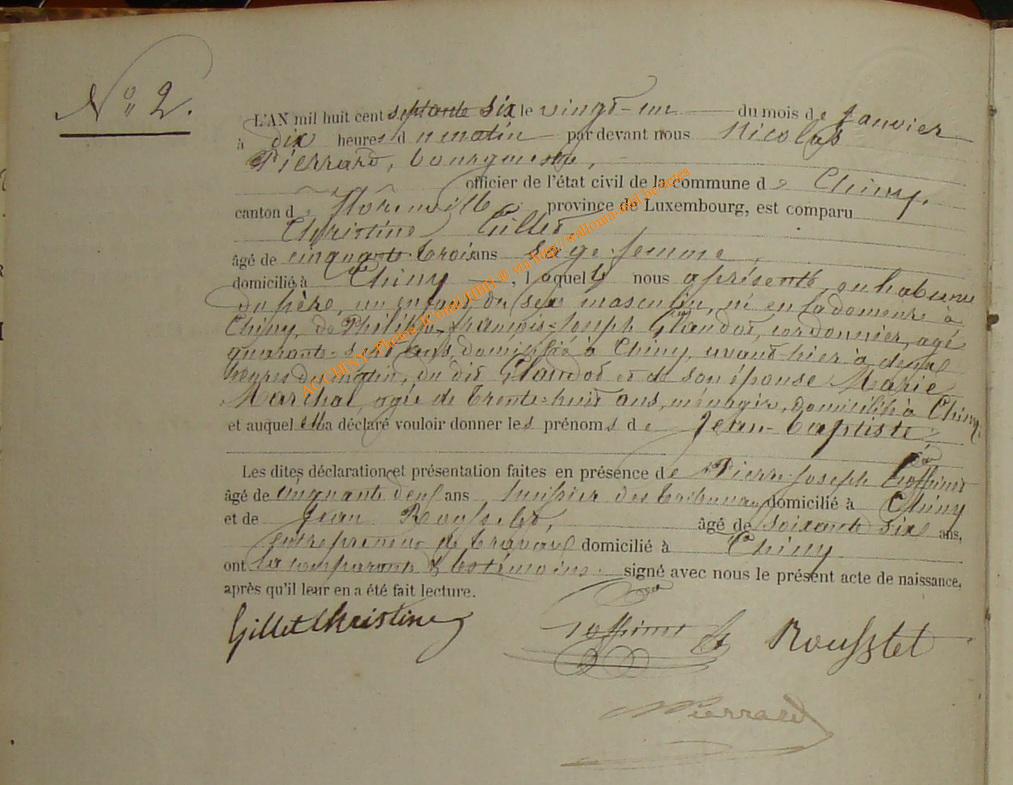 N° 2.
L'AN mil huit cent septante six le vingt-un du mois de Janvier
à dix heures du matin par devant nous Nicolas
Pierrard, bourgmestre,
officier de l'état civil de la commune de Chiny,
canton de Florenville province de Luxembourg, est comparu
Christine Gillet
âgé de cinquante-trois ans sage-femme,
domicilié à Chiny, laquelle nous a présenté, en l'absence
du père, un enfant du sexe masculin, né en sa demeure à
Chiny, de Philippe-françois-Joseph Glaudot, cordonnier, agé
quarante-sept ans, domicilié à Chiny, avant-hier à deux
heures du matin, du dit Glaudot et de son épouse Marie
Marchal, agée de trente-huit ans, ménagère, domiciliée à Chiny
et auquel elle a déclaré vouloir donner les prénoms de Jean-Baptiste
Les dites déclaration et présentation faites en présence de Pierre-Joseph
âgé de cinquante deux ans huissier des tribunaux domicilié à Chiny
et de Jean Rousselet, âgé de soixante six ans,
entrepreneur de travaux domicilié à Chiny
ont la comparante & les témoins signé avec nous le présent acte de naissance,
après qu'il leur en a été fait lecture.
Gillet Christine
Rousslet
Pierrard